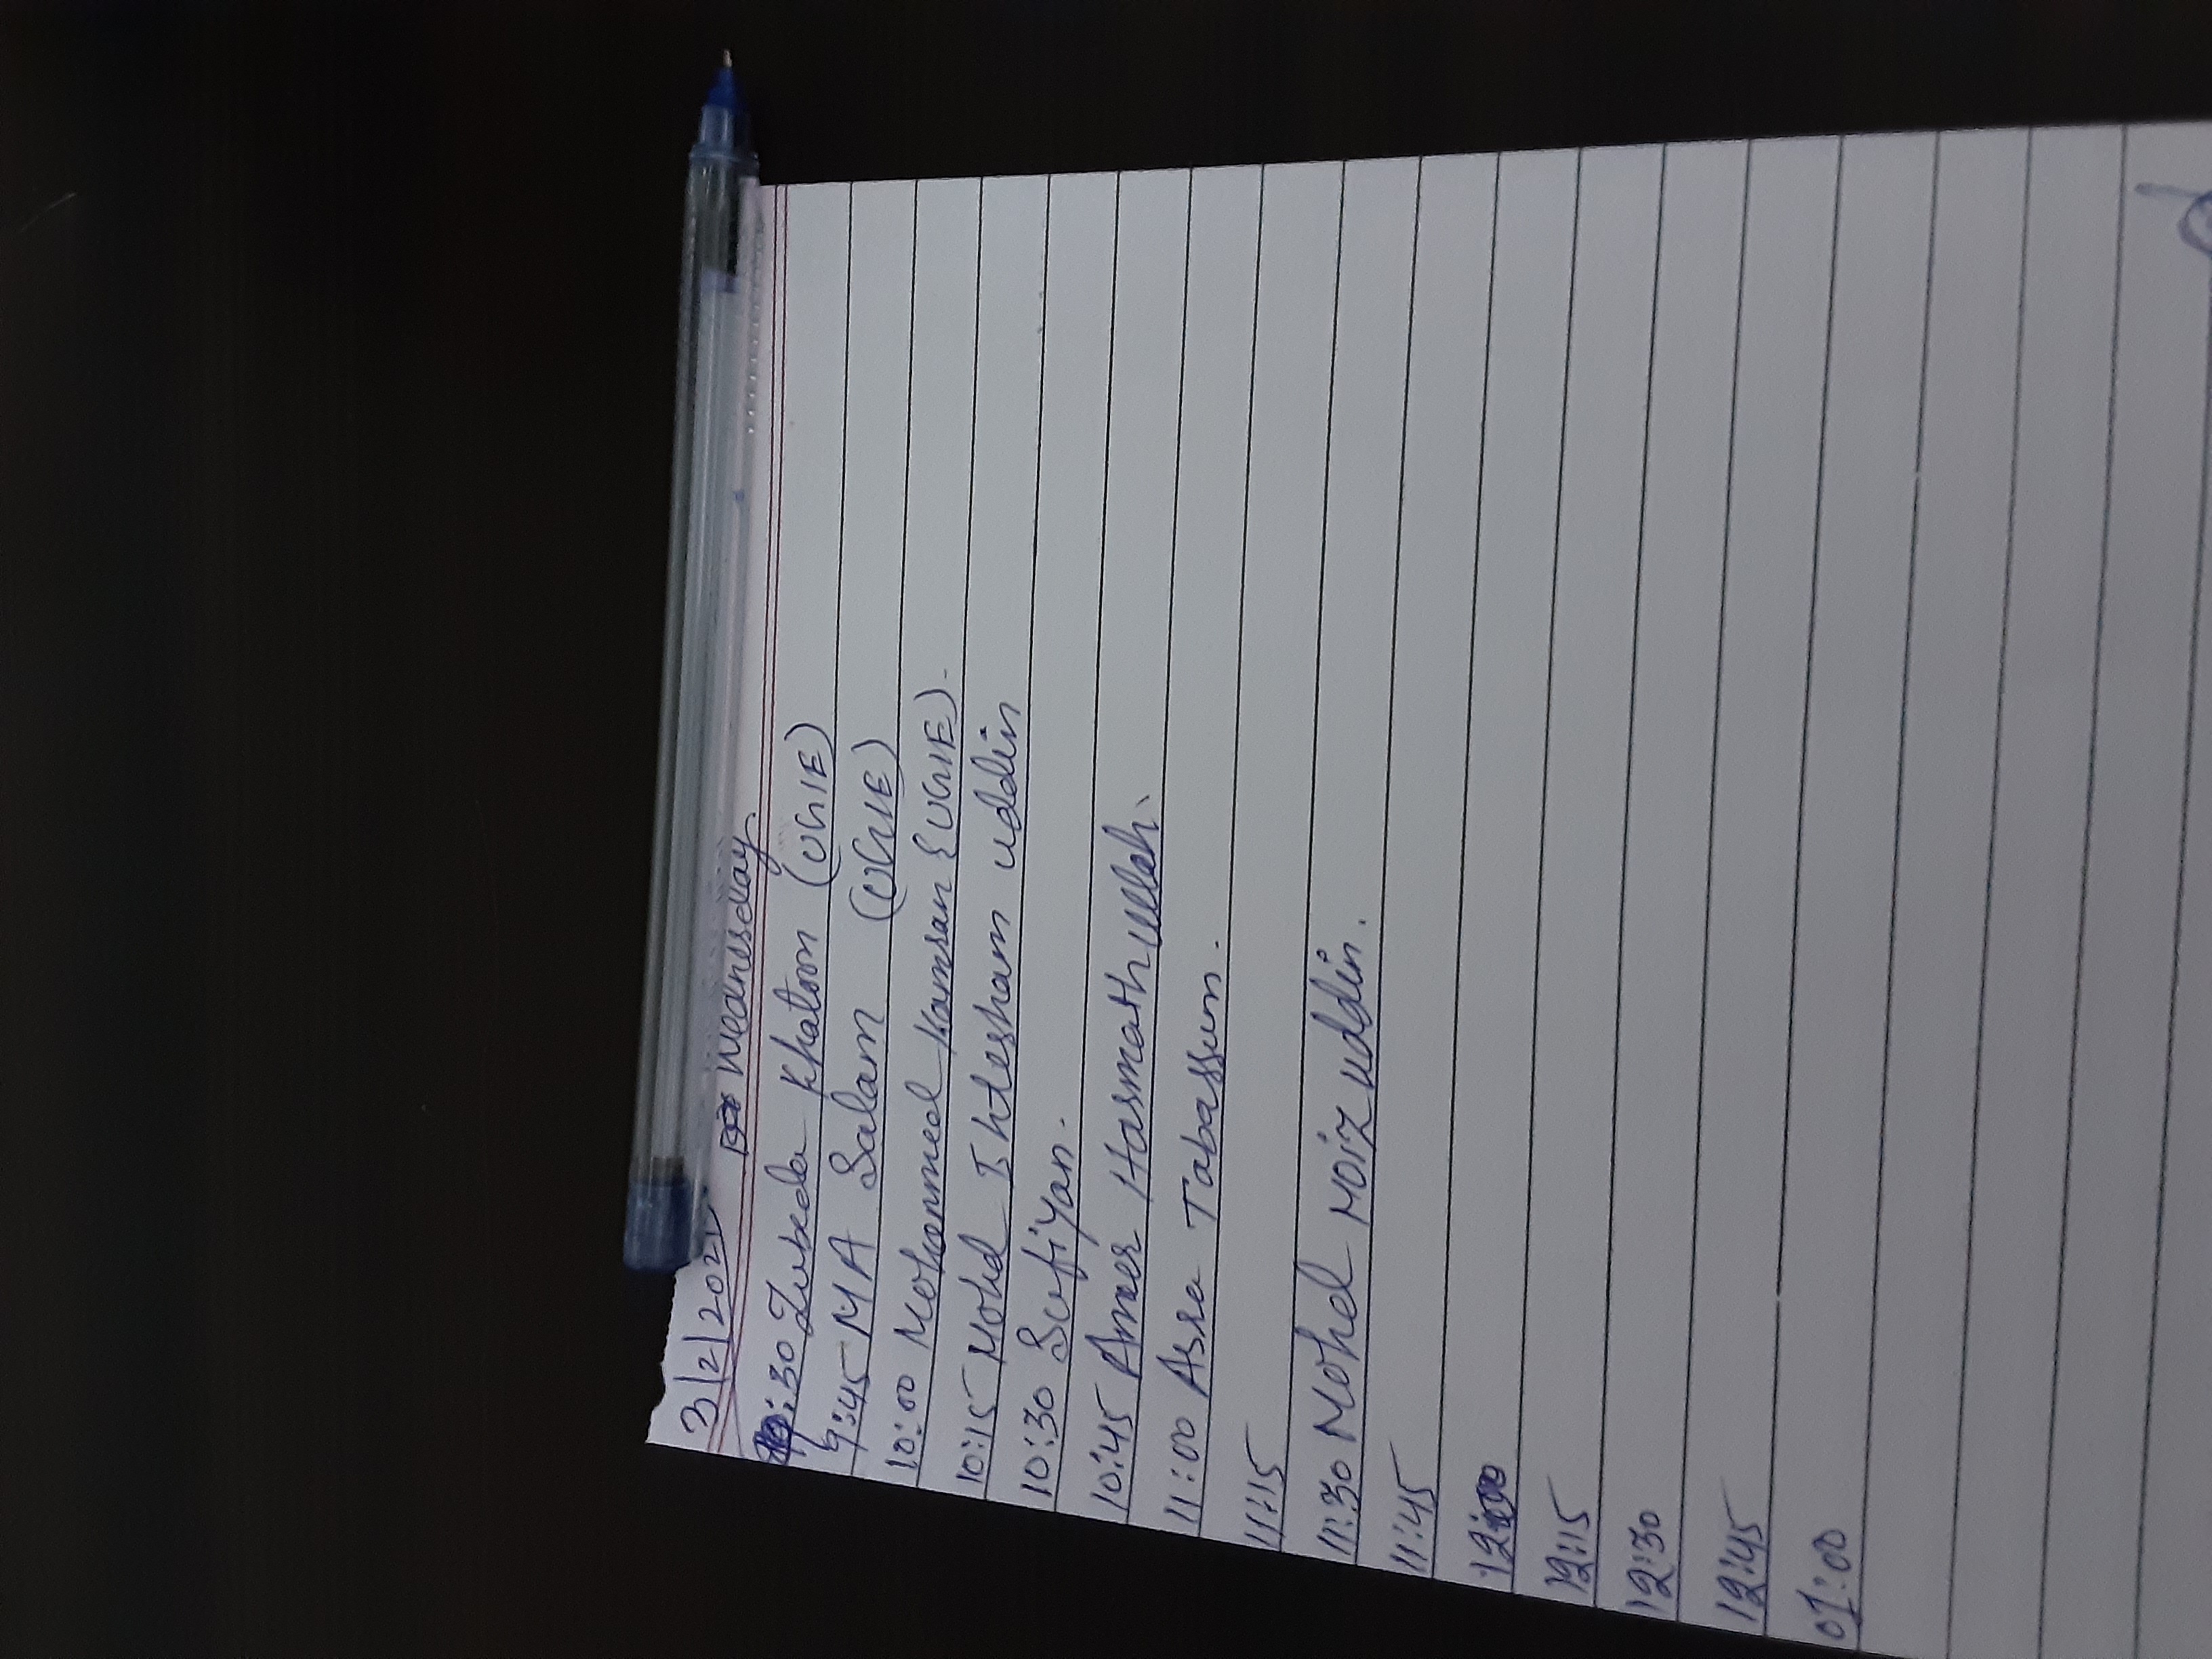 3/2/2021 Wednesday.
9:30 Zubeda Khatoon (UGIE)
9:45 MA Salam (UGIE)
10:00 Mohammed Kamran {UGIE).
10:15 Mohd Ihtesham uddin
10:30 Sufiyan.
10:45 Amer Hasmathullah.
11:00 Asra Tabassum.
11:15
11:30 Mohd Moiz uddin.
11:45
12:00
12:15
12:30
12:45
01:00